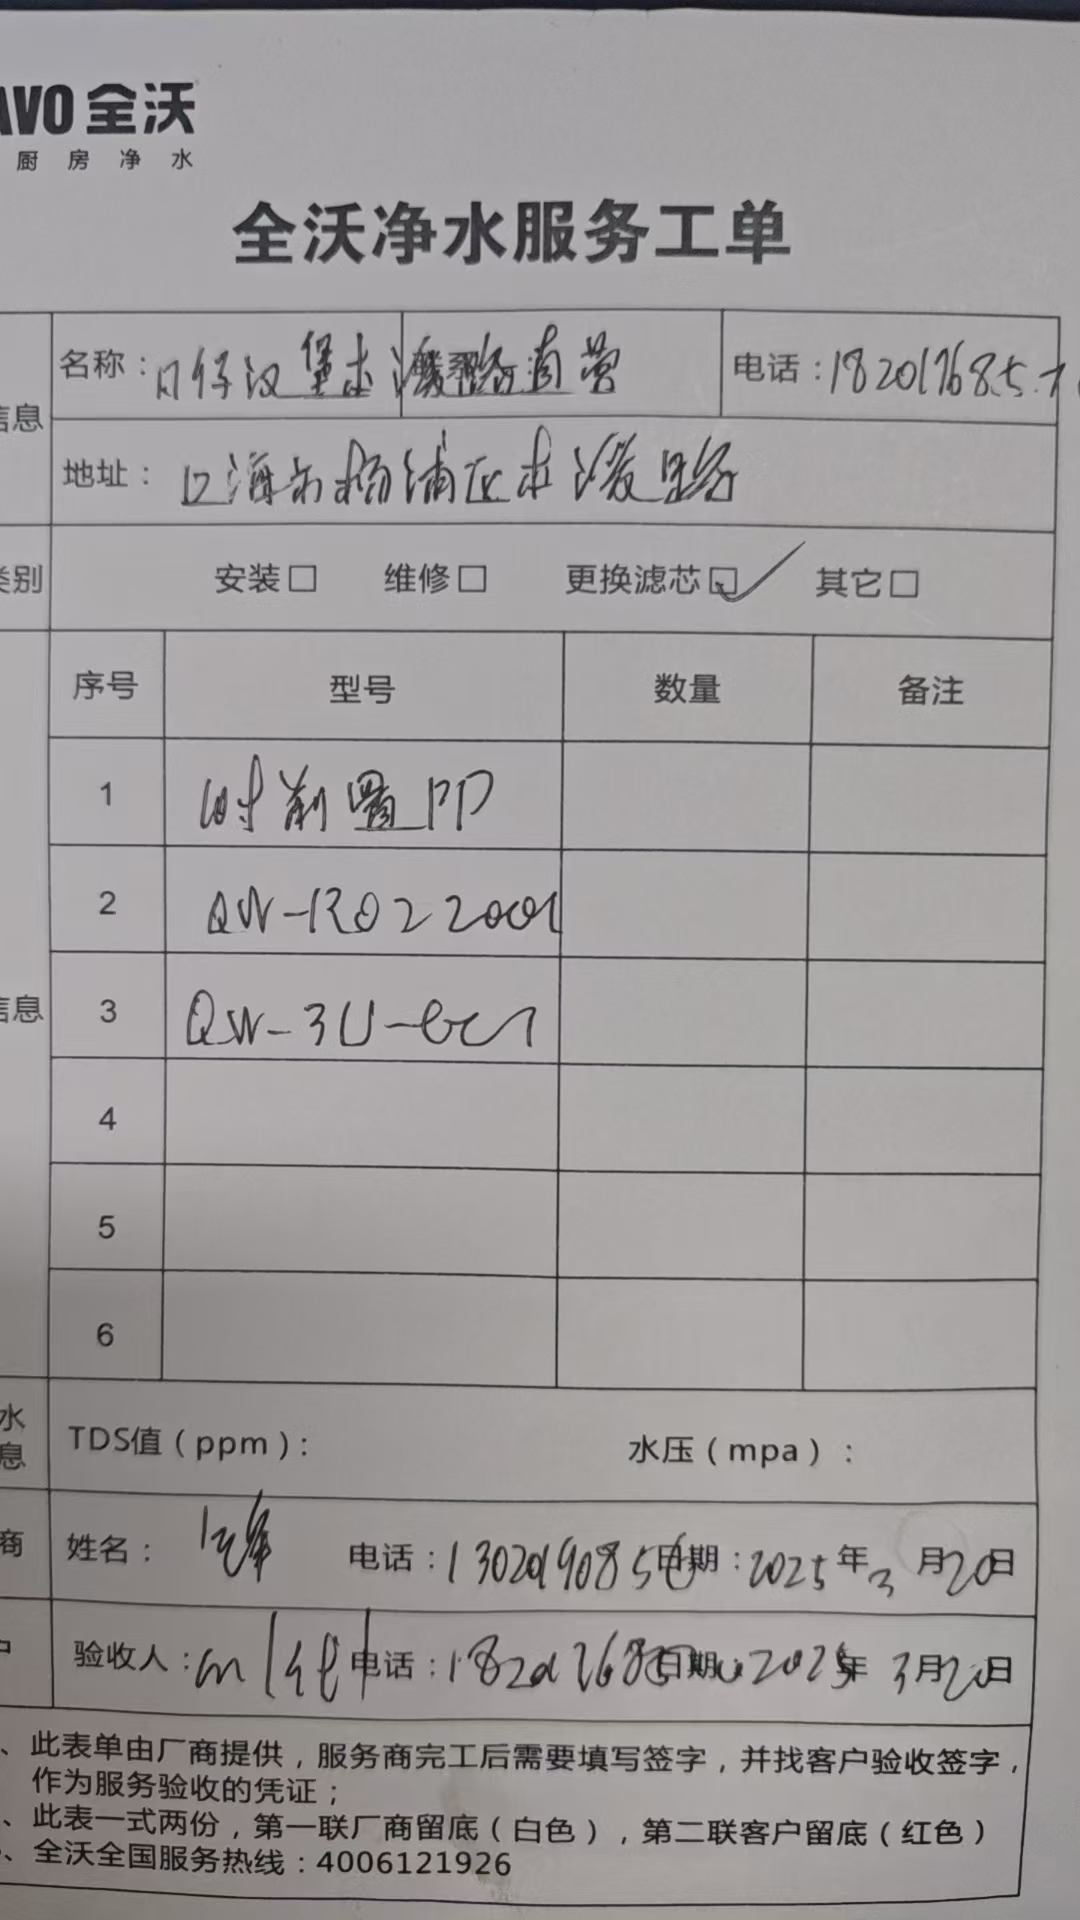 AVO 全沃
厨房净水
全沃净水服务工单
信息
名称：汉堡 直营 电话：182017685
地址：上海市杨浦区 路
类别 安装□ 维修□ 更换滤芯☑ 其它□
序号 型号 数量 备注
1 时前置PP
2 QW-RO22001
信息 3 QW-3U-GC1
4
5
6
水
息
TDS值（ppm）： 水压（mpa）：
商 姓名： 电话：1302019085 日期：2025年3月20日
户 验收人： 电话：182017685 日期：2025年3月20日
、此表单由厂商提供，服务商完工后需要填写签字，并找客户验收签字，
作为服务验收的凭证；
、此表一式两份，第一联厂商留底（白色），第二联客户留底（红色）
、全沃全国服务热线：4006121926